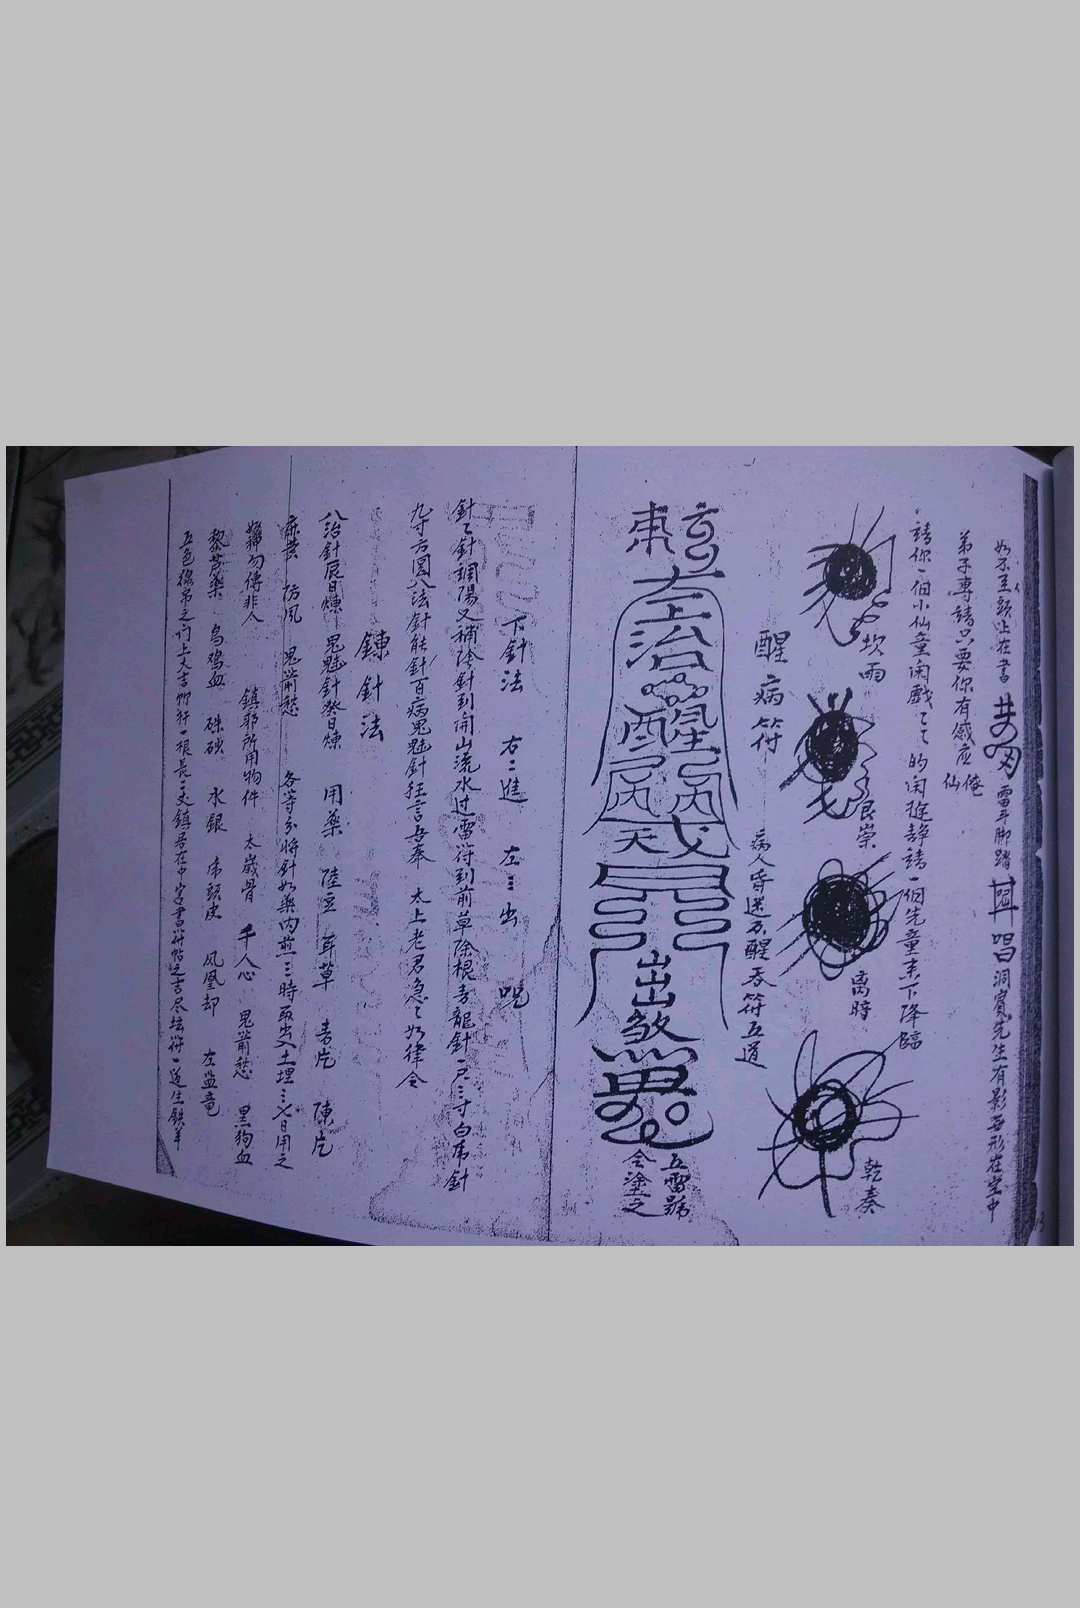 如不至頭
在書
雷斗脚踏
唱
洞賓先生有影無形在空中
弟子專請只要你有感应
仙俺
請你一個小仙童開戲
的開
靜請一個先童来下降臨
坎雨
艮崇
离時
乾奏
醒病符
病人昏迷不醒吞符五道
玄
東
太上治
醒病
五雷號
令塗之
下針法 右二進 左三出 咒
針針調陽又補陰針到開山流水过雷符到前草除根青龍針一尺三寸白虎針
九寸方圓八法針能針百病鬼魅針狂言吾奉 太上老君急々如律令
鍊針法
八治針辰日煉 鬼魅針癸日煉 用藥 陸豆 耳草 青皮 陳皮
麻黄 防風 鬼箭愁 各等分將針如藥内煎三時取出入土埋三七日用之
勿傳非人 鎮邪所用物件 太歲骨 千人心 鬼箭愁 黑狗血
藜芦藥 烏鸡血 硃砂 水銀 虎頭皮 凤凰却 左盘竜
五色線吊之门上大吉 一根長二丈鎮居在中宫書符